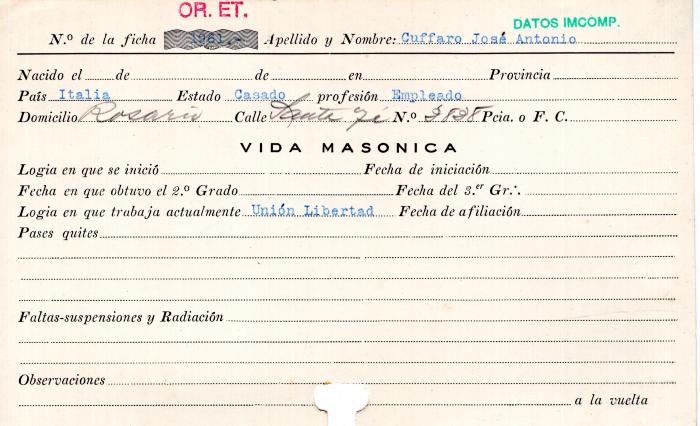 OR. ET.
DATOS IMCOMP.
N.º de la ficha 1961.- Apellido y Nombre: Cuffaro José Antonio
Nacido el de de en Provincia
País Italia Estado Casado profesión Empleado
Domicilio Rosario Calle Santa Fé N.º 3838 Pcia. o F. C.
VIDA MASONICA
Logia en que se inició Fecha de iniciación
Fecha en que obtuvo el 2.º Grado Fecha del 3.er Gr∴
Logia en que trabaja actualmente Unión Libertad Fecha de afiliación
Pases quites
Faltas-suspensiones y Radiación
Observaciones
a la vuelta